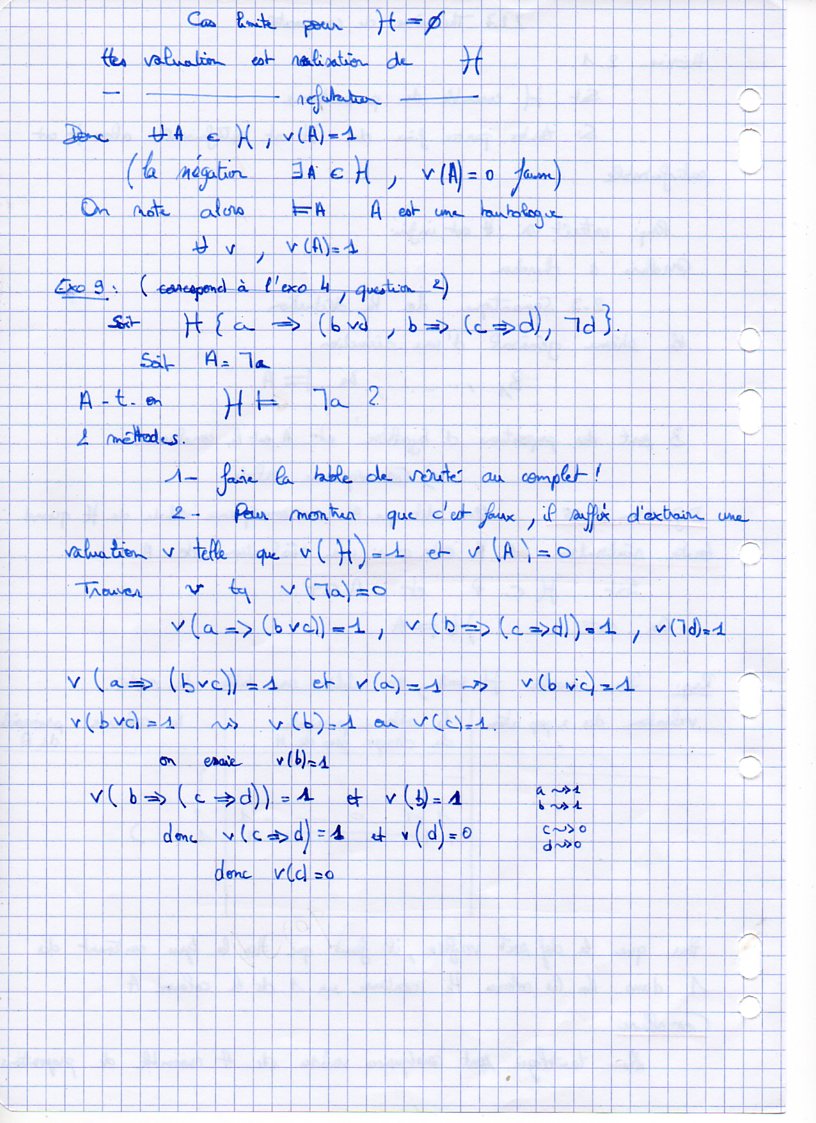 Cas limite pour H = ∅
ttes valuation est réalisation de H
— ———— refutation ————
Donc ∀ A ∈ H, v(A)=1
(la négation ∃A ∈ H, v(A)=0 fausse)
On note alors ⊨A A est une tautologie
∀ v, v(A)=1
Exo 9 : (correspond à l'exo 4, question 2)
Soit H { a ⇒ (b∨c), b ⇒ (c⇒d), ¬d }.
Soit A = ¬a
A-t-on H ⊨ ¬a ?
2 méthodes.
1- faire la table de vérité au complet !
2- Pour montrer que c'est faux, il suffit d'extraire une
valuation v telle que v(H)=1 et v(A)=0
Trouver v tq v(¬a)=0
v(a⇒(b∨c))=1, v(b⇒(c⇒d))=1, v(¬d)=1
v(a⇒(b∨c))=1 et v(a)=1 ⇝ v(b∨c)=1
v(b∨c)=1 ⇝ v(b)=1 ou v(c)=1.
on essaie v(b)=1
v(b⇒(c⇒d))=1 et v(b)=1 a⇝1
b⇝1
donc v(c⇒d)=1 et v(d)=0 c⇝0
d⇝0
donc v(c)=0